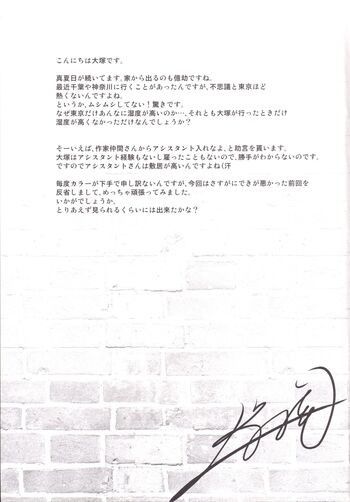 こんにちは大塚です。
真夏日が続いてます、家から出るのも億劫ですね。
最近千葉や神奈川に行くことがあったんですが、不思議と東京ほど
熱くないんですよね。
というか、ムシムシしてない!驚きです。
なぜ東京だけあんなに湿度が高いのか…、それとも大塚が行ったときだけ
湿度が高くなかっただけなんでしょうか?
そーいえば、作家仲間さんからアシスタント入れなよ、と助言を貰います。
大塚はアシスタント経験もないし雇ったこともないので、勝手がわからないのです。
ですのでアシスタントさんは敷居が高いんですよね(汗
毎度カラーが下手で申し訳ないんですが、今回はさすがにできが悪かった前回を
反省しまして、めっちゃ頑張ってみました。
いかがでしょうか。
とりあえず見られるくらいには出来たかな?